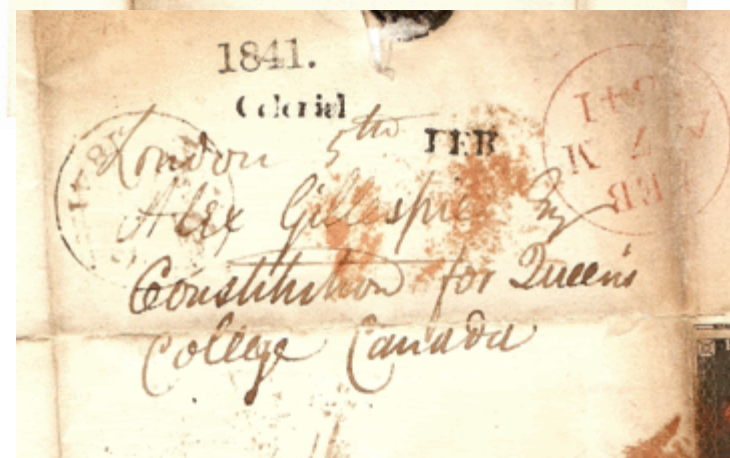 1841.
Colonial
FEB
London 5th
Alex Gillespie Esq
Constitution for Queen's
College Canada